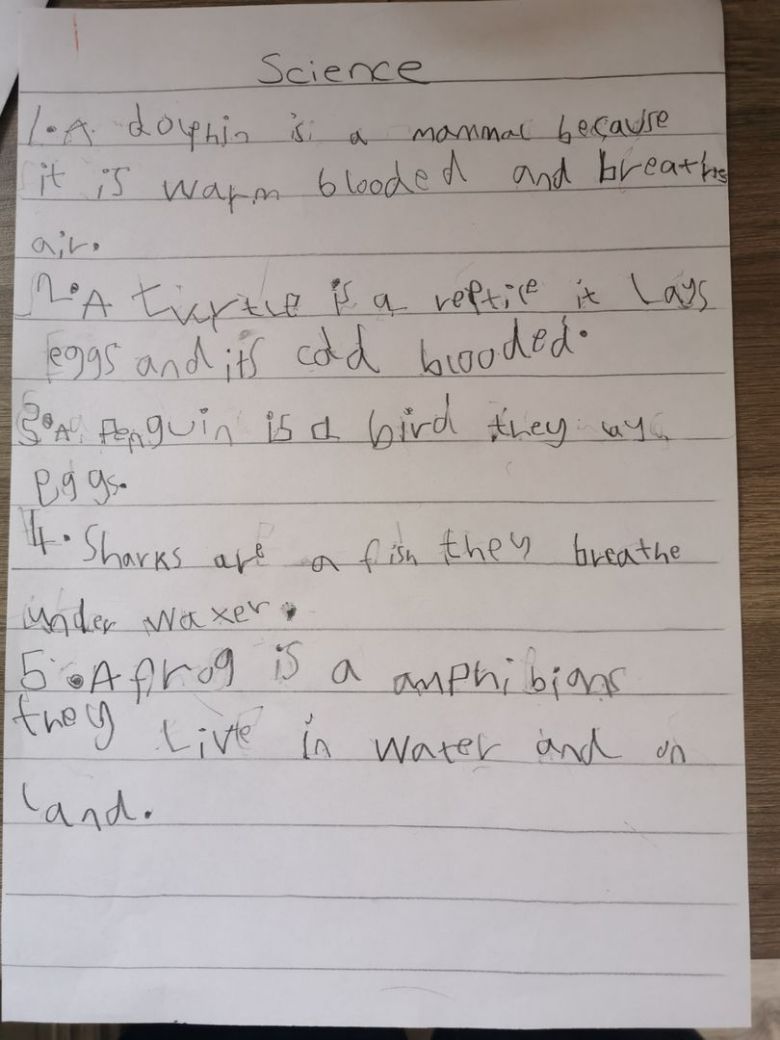 Science
1. A dolphin is a mammal because
it is warm blooded and breaths
air.
2. A turtle is a reptile it lays
eggs and its cold blooded.
3. A penguin is a bird they lay
eggs.
4. Sharks are a fish they breathe
under waxer.
5. A frog is a amphibians
they Live in water and on
land.